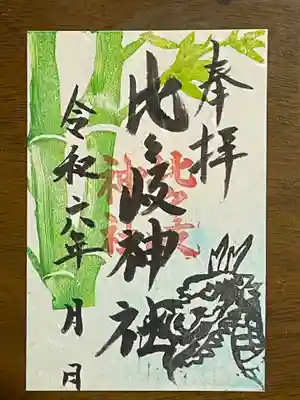 奉拝
比々岐神社
令和六年 月 日